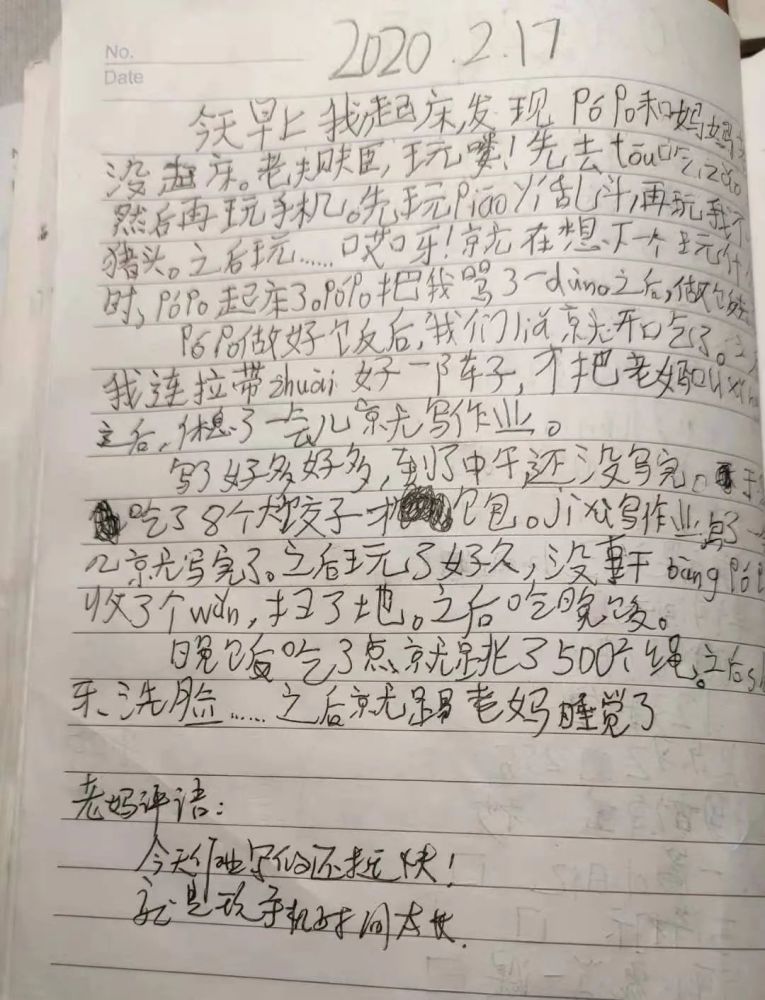 No.
Date
2020.2.17
今天早上我起床,发现PóPo和妈妈
没起床。老规矩,玩喽!先去tōu吃,zǎo
然后再玩手机。先玩Piāo丫乱斗,再玩我不
猪头。之后玩……哎呀!就在想下一个玩什
时,PóPo起床了。PóPo把我骂了一dùn。之后,做饭
PóPo做好饭后,我们jiù就开口吃了。
我连拉带zhuài好一阵子,才把老妈叫
之后,休息了一会儿就写作业。
写了好多好多,到了中午还没写完。于
吃了8个大饺子一才包。jìxù写作业写了一
儿就写完了。之后玩了好久,没事干bāngPóP
收了个wǎn,扫了地。之后吃晚饭。
晚饭吃了点,就跳了500个绳。之后s
牙、洗脸……之后就跟老妈睡觉了
老妈评语:
今天作业写的还挺快!
就是玩手机时间太长.